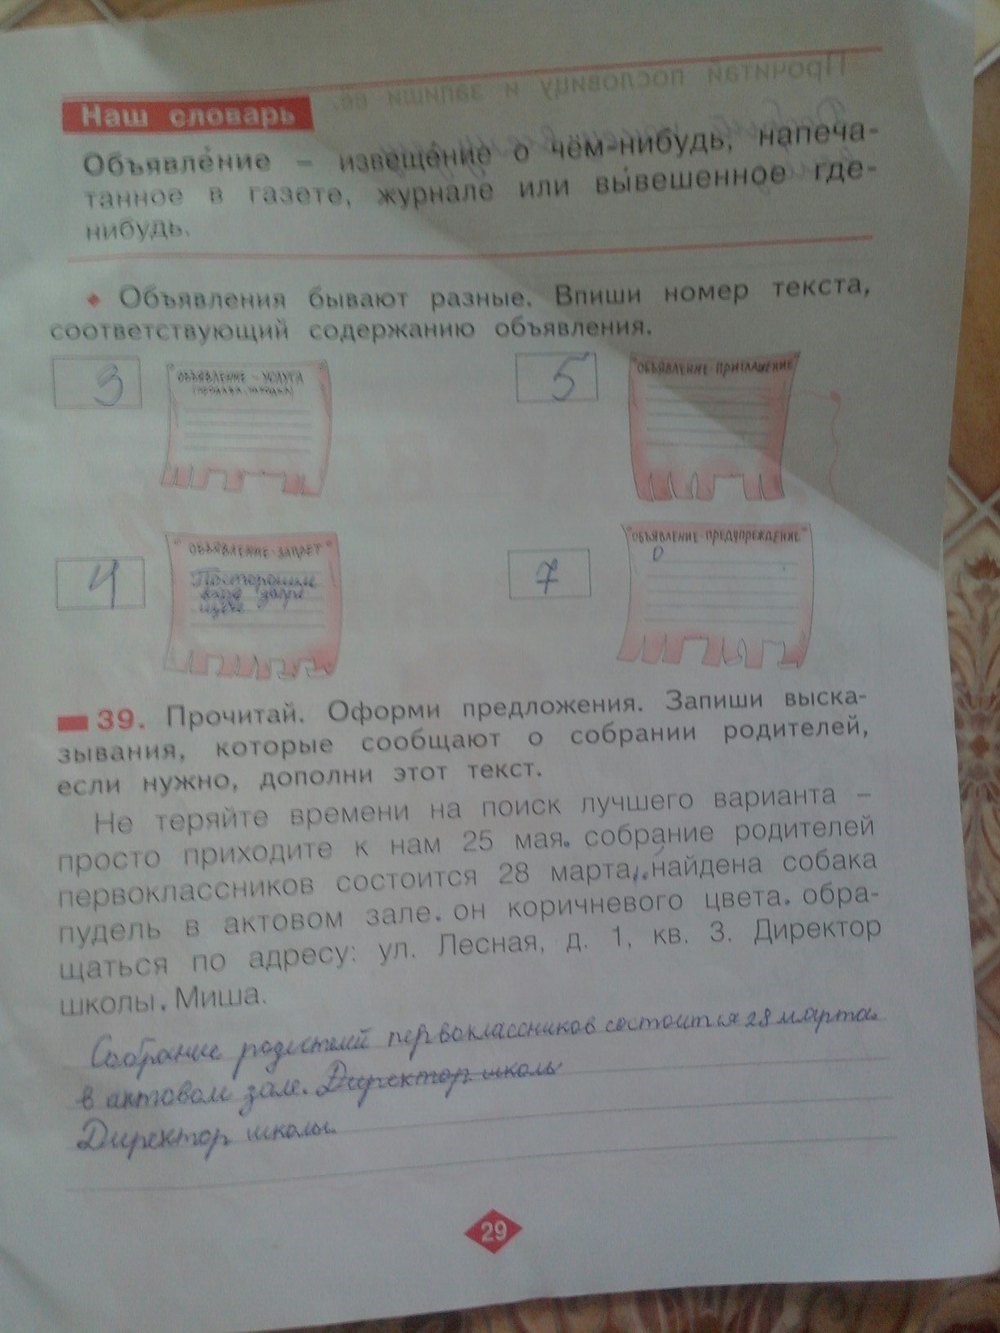 Наш словарь
Объявле́ние – извеще́ние о чём-нибудь, напеча-
танное в газете, журнале или вы́вешенное где-
нибудь.
Объявления бывают разные. Впиши номер текста,
соответствующий содержанию объявления.
3
ОБЪЯВЛЕНИЕ - УСЛУГА
5
ОБЪЯВЛЕНИЕ - ПРИГЛАШЕНИЕ
4
ОБЪЯВЛЕНИЕ - ЗАПРЕТ
Посторонним
вход
7
ОБЪЯВЛЕНИЕ - ПРЕДУПРЕЖДЕНИЕ
О
39. Прочитай. Оформи предложения. Запиши выска-
зывания, которые сообщают о собрании родителей,
если нужно, дополни этот текст.
Не теряйте времени на поиск лучшего варианта –
просто приходите к нам 25 мая. собрание родителей
первоклассников состоится 28 марта. найдена собака
пудель в актовом зале. он коричневого цвета. обра-
щаться по адресу: ул. Лесная, д. 1, кв. 3. Директор
школы. Миша.
Собрание родителей первоклассников состоится 28 марта.
в актовом зале. Директор школы
Директор школы.
29